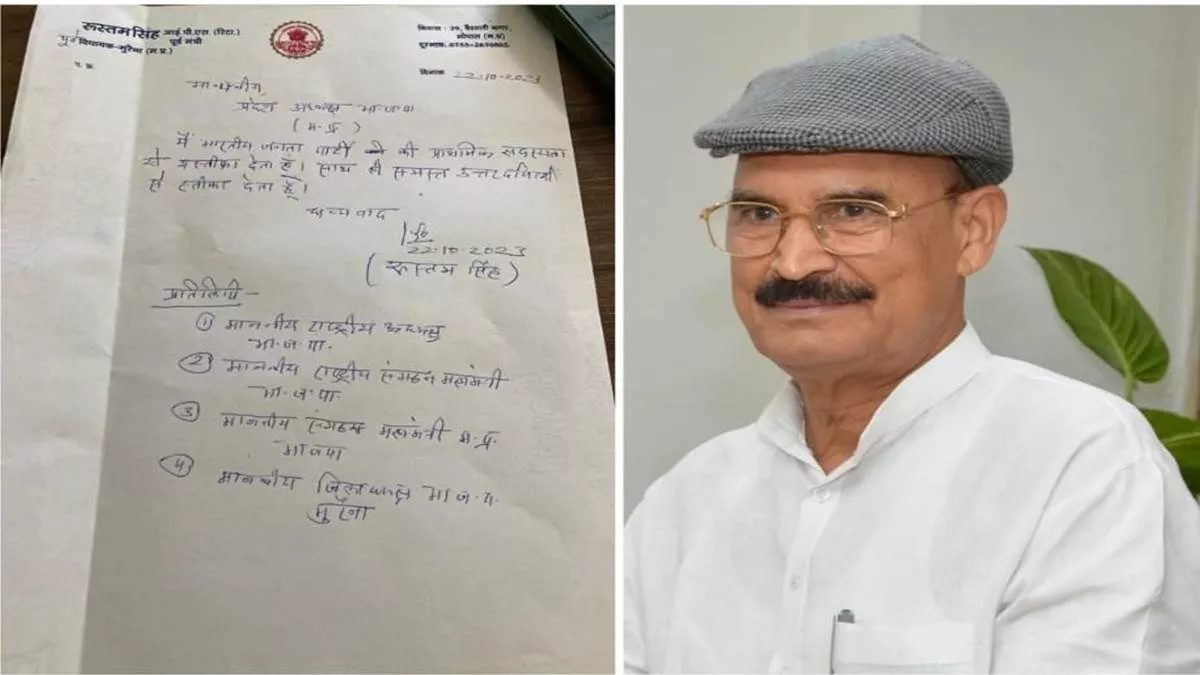 रूस्तम सिंह आई.पी.एस. (रिटा.)
पूर्व मंत्री
पूर्व विधायक-मुरैना (म.प्र.)
निवास : 39, वैशाली नगर,
भोपाल (म.प्र.)
दिनांक 22.10.2023
माननीय,
प्रदेश अध्यक्ष भा.ज.पा.
(म.प्र.)
मैं भारतीय जनता पार्टी की प्राथमिक सदस्यता
से इस्तीफा देता हूँ। साथ ही समस्त उत्तरदायित्वों
से स्तीफा देता हूँ।
धन्यवाद
22.10.2023
(रूस्तम सिंह)
प्रतिलिपी -
1) माननीय राष्ट्रीय अध्यक्ष
भा.ज.पा.
2) माननीय राष्ट्रीय संगठन महामंत्री
भा.ज.पा.
3 माननीय संगठन महामंत्री म.प्र.
भाजपा
4) माननीय जिलाध्यक्ष भा.ज.पा.
मुरैना